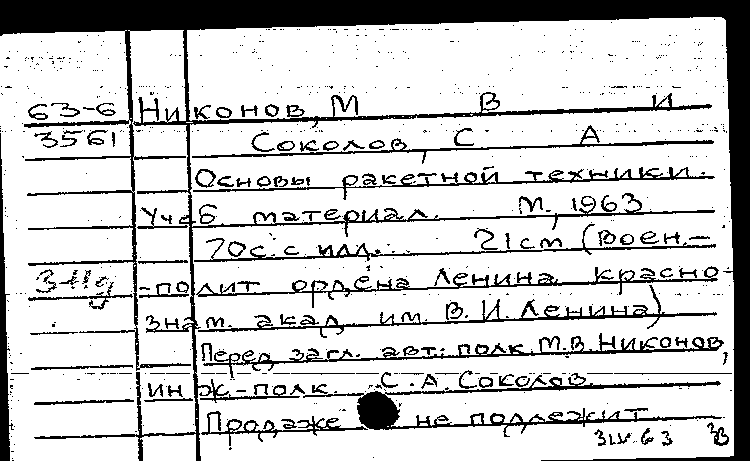 63-6 Никонов, М В И
3561 Соколов, С А
Основы ракетной техники.
Учеб материал. М., 1963
70с. с илл. 21cm (Воен.-
-полит ордена Ленина красно-
знам. акад им. В. И. Ленина)
Перед загл. авт: полк. М.В. Никонов,
инж-полк. С.А. Соколов.
Продаже не подлежит